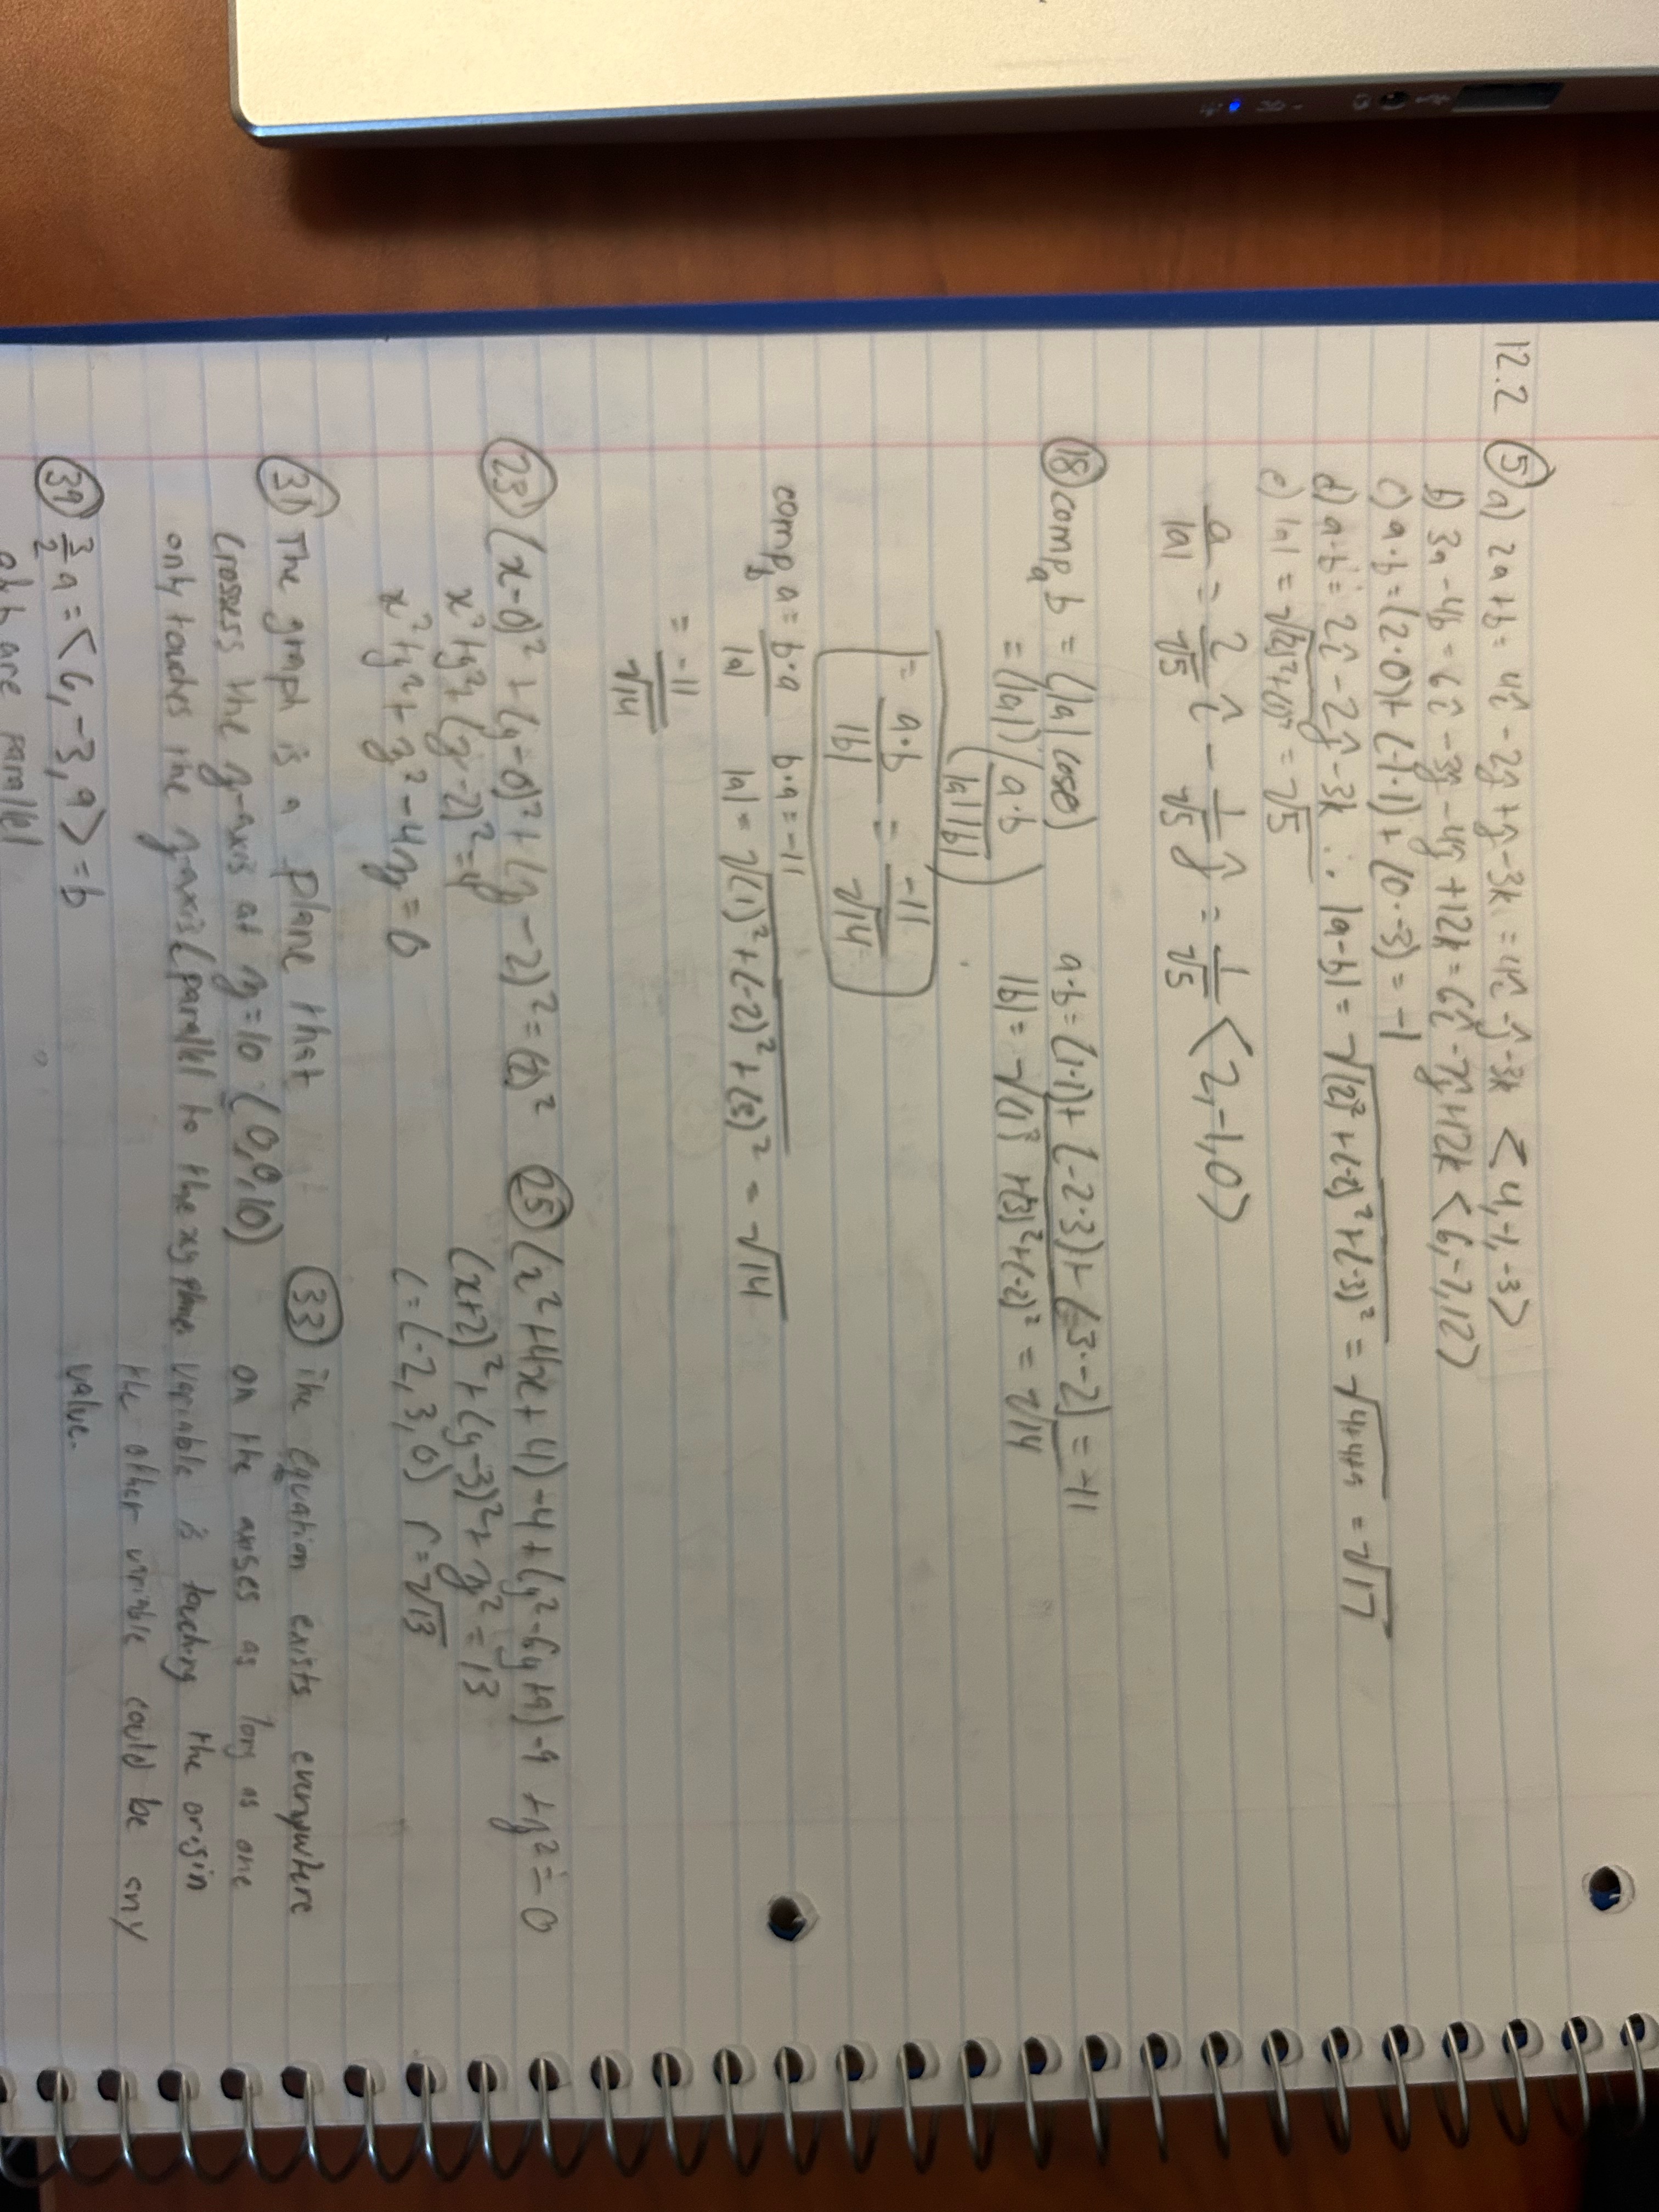 12.2
⑤ a) 2a + b = 4î - 2ĵ + ĵ - 3k = 4î - ĵ - 3k <4, -1, -3>
b) 3a - 4b = 6î - 3ĵ - 4ĵ + 12k = 6î - 7ĵ + 12k <6, -7, 12>
c) a·b = (2·0) + (-1·1) + (0·-3) = -1
d) a-b = 2î - 2ĵ - 3k ∴ |a-b| = √(2)² + (-2)² + (-3)² = √4+4+9 = √17
e) |a| = √(2)² + (1)² = √5
a/|a| = 2/√5 î - 1/√5 ĵ = 1/√5 <2, -1, 0>
⑱ compₐb = (|a| cosθ) a·b = (1·1) + (-2·3) + (3·-2) = -11
= (|a|)(a·b/|a||b|) |b| = √(1)² + (3)² + (-2)² = √14
= a·b/|b| = -11/√14
comp_b a = b·a/|a| b·a = -11
|a| = √(1)² + (-2)² + (3)² = √14
= -11/√14
㉓ (x-0)² + (y-0)² + (z-2)² = (2)²
x² + y² + (z-2)² = 4
x² + y² + z² - 4z = 0
㉕ (x² + 4x + 4) - 4 + (y² - 6y + 9) - 9 + z² = 0
(x+2)² + (y-3)² + z² = 13
C = (-2, 3, 0) r = √13
㉛ The graph is a plane that
crosses the z-axis at z=10 (0,0,10)
only touches the z-axis (parallel to the xy plane
㉝ The equation exists everywhere
on the axises as long as one
variable is touching the origin
the other varible could be any
value.
㊴ 3/2 a = <6, -3, 9> = b
a & b are parallel